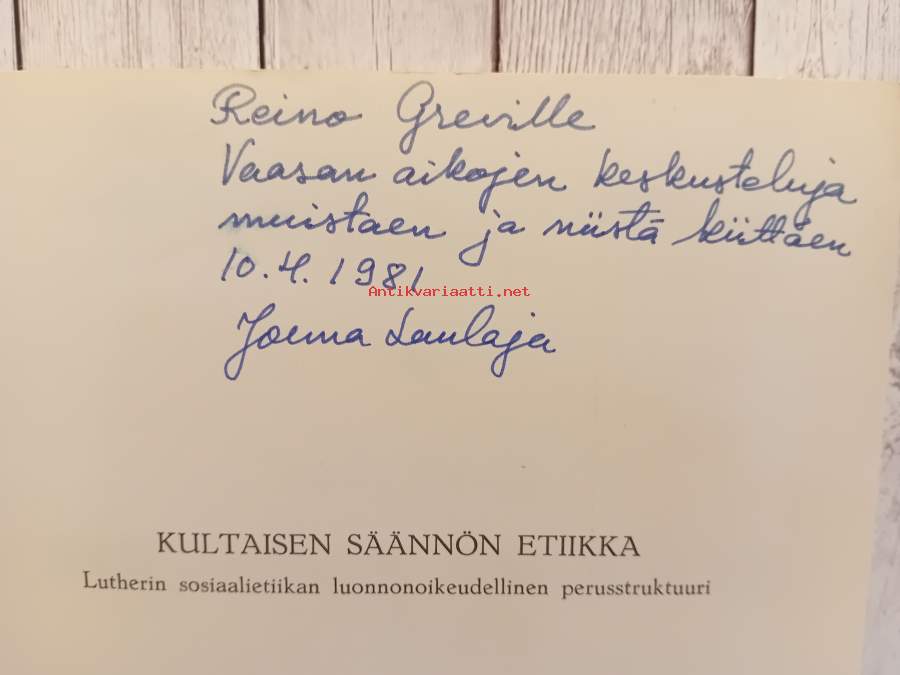 Reino Greville
Vaasan aikojen keskusteluja
muistaen ja niistä kiittäen
10.4.1981
Antikvariaatti.net
Jorma Laulaja
KULTAISEN SÄÄNNÖN ETIIKKA
Lutherin sosiaalietiikan luonnonoikeudellinen perusstruktuuri